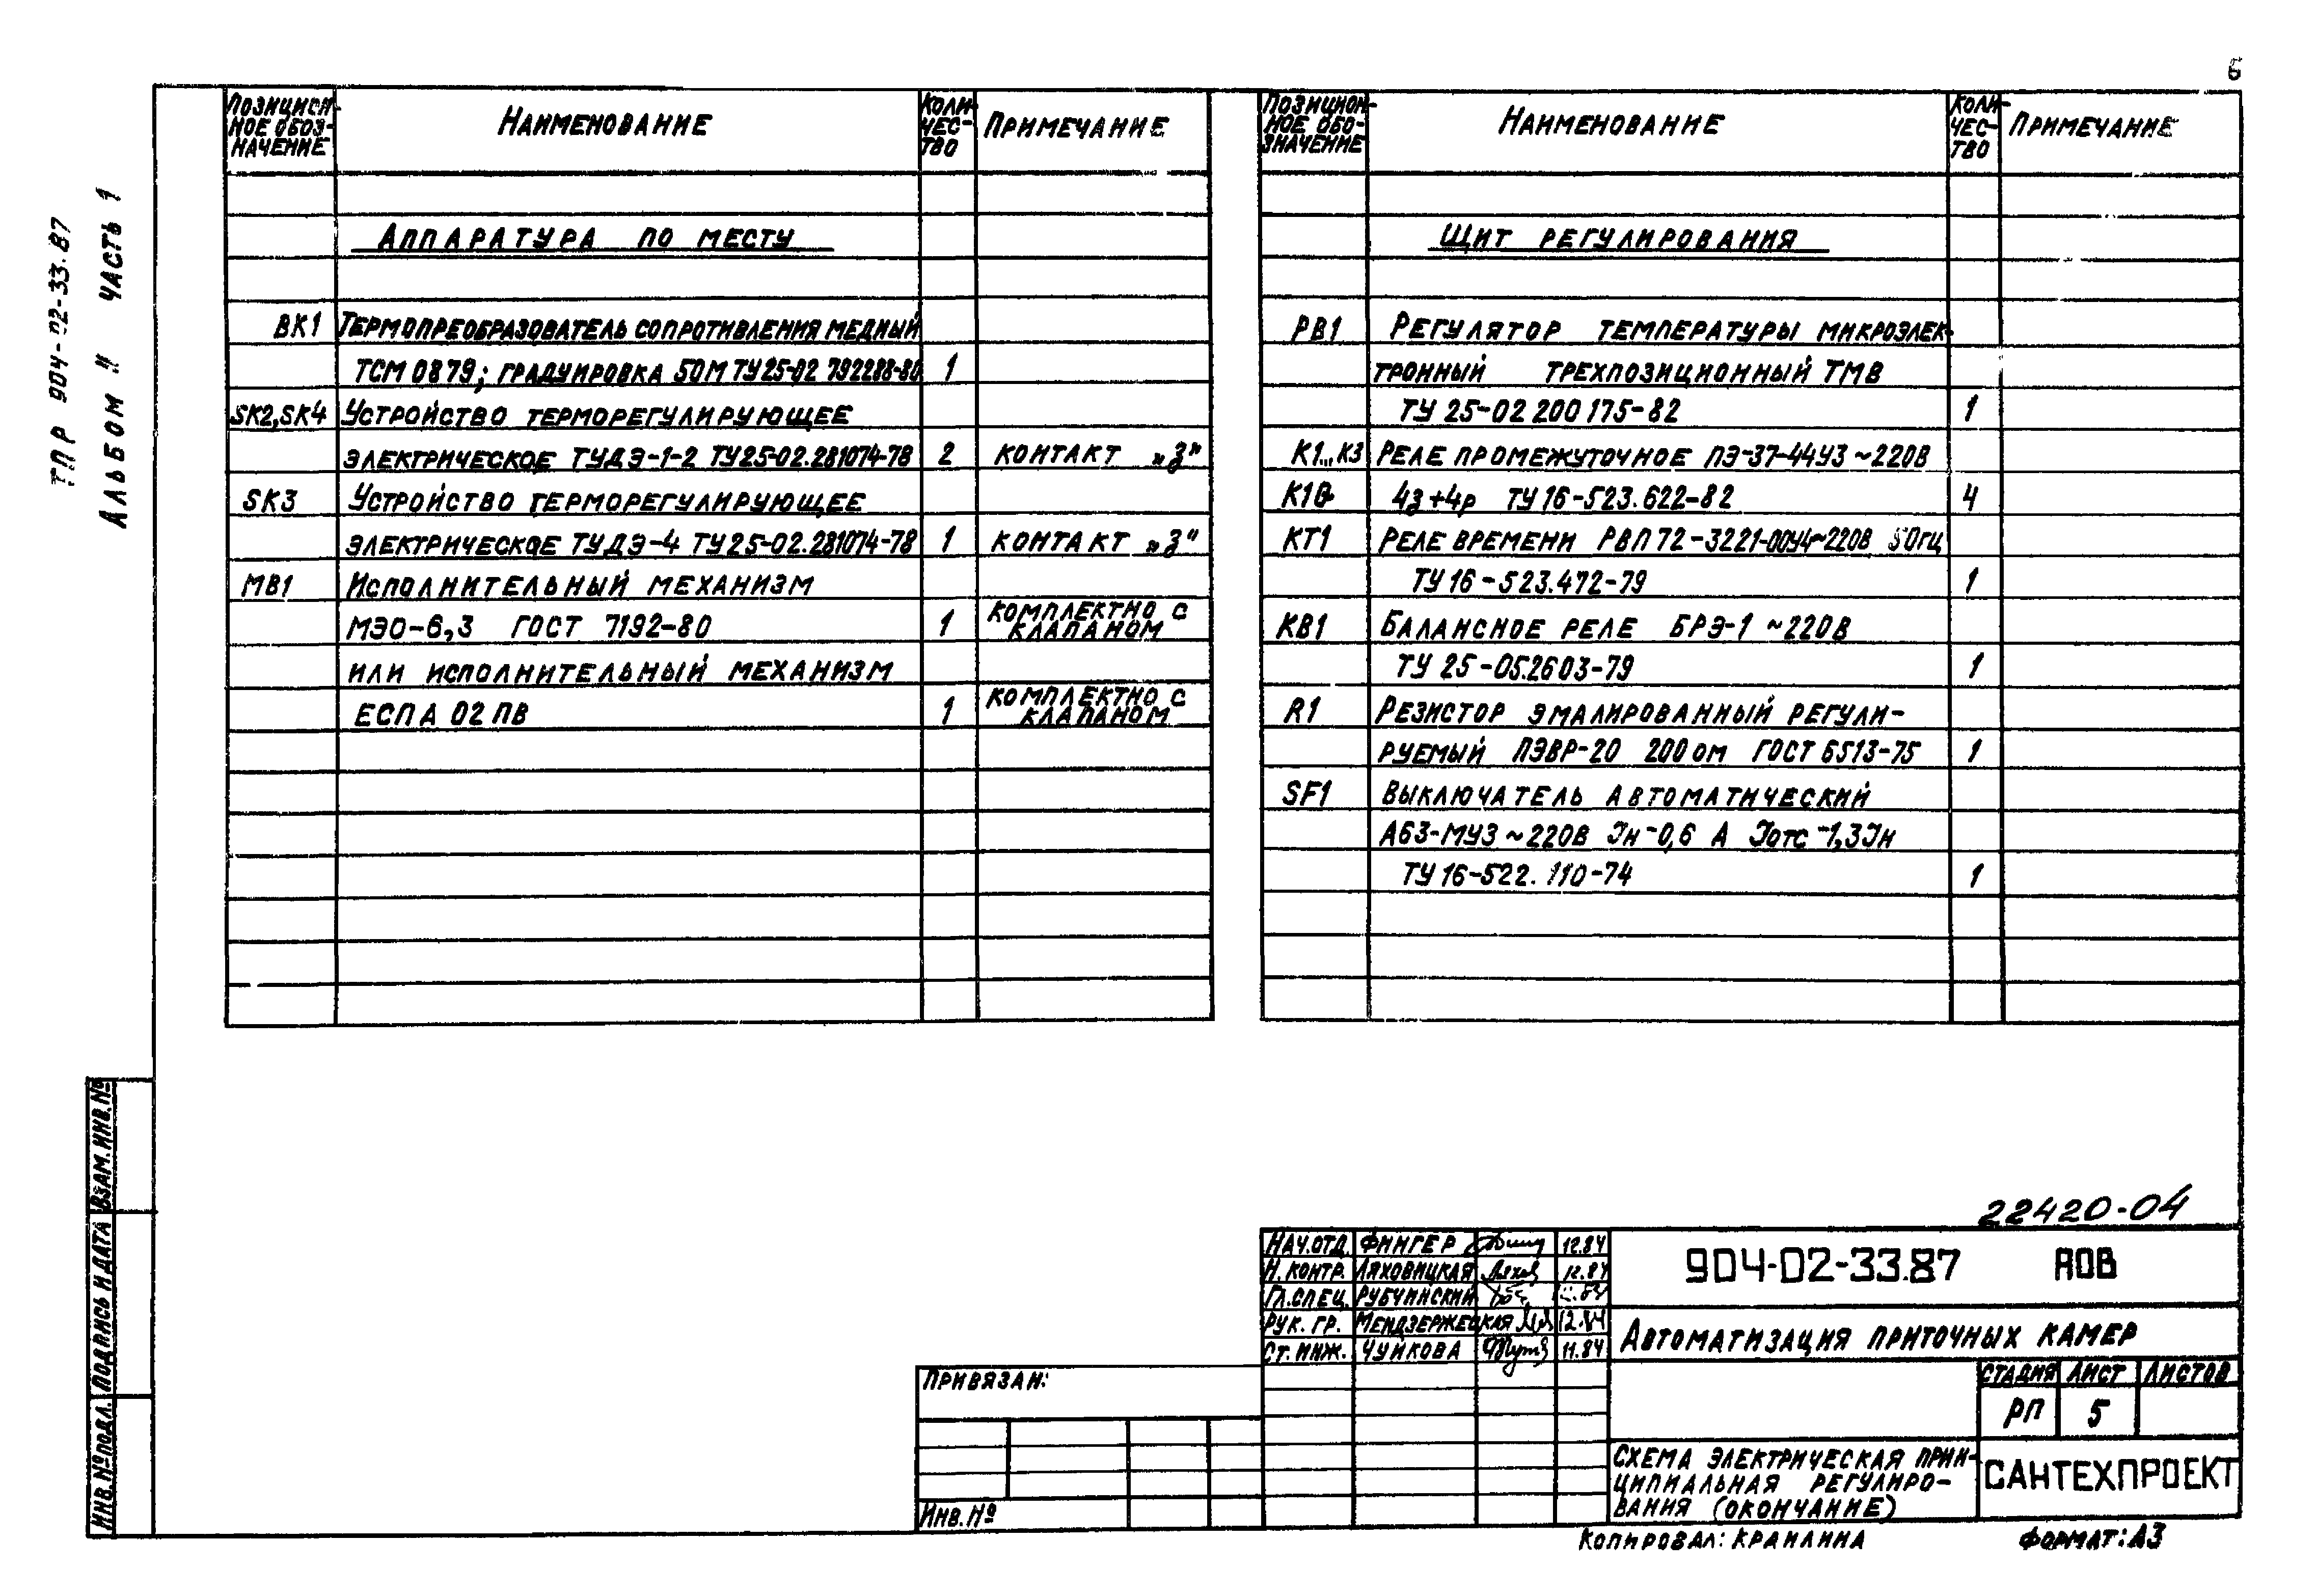 6
ТПР 904-02-33.87
Альбом II часть 1
Позицион-
ное обоз-
начение
Наименование
Коли-
чес-
тво
Примечание
Аппаратура по месту
ВК1 Термопреобразователь сопротивления медный
ТСМ 0879; градуировка 50М ТУ25-02 792288-80 1
SK2,SK4 Устройство терморегулирующее
электрическое ТУДЭ-1-2 ТУ25-02.281074-78 2 контакт „З"
SK3 Устройство терморегулирующее
электрическое ТУДЭ-4 ТУ25-02.281074-78 1 контакт „З"
МВ1 Исполнительный механизм
МЭО-6,3 ГОСТ 7192-80 1 комплектно с
клапаном
или исполнительный механизм
ЕСПА 02 ПВ 1 комплектно с
клапаном
Позицион-
ное обо-
значение
Наименование
Коли-
чес-
тво
Примечание
Щит регулирования
РВ1 Регулятор температуры микроэлек-
тронный трехпозиционный ТМВ
ТУ 25-02 200 175-82 1
К1...К3 Реле промежуточное ПЭ-37-44У3 ~220В
К10 4з+4р ТУ 16-523.622-82 4
КТ1 Реле времени РВП72-3221-00У4~220В 50гц
ТУ 16-523.472-79 1
КВ1 Балансное реле БРЭ-1 ~220В
ТУ 25-05.2603-79 1
R1 Резистор эмалированный регули-
руемый ПЭВР-20 200 ом ГОСТ 6513-75 1
SF1 Выключатель автоматический
А63-МУ3 ~220В Iн-0,6 А Iотс-1,3Iн
ТУ 16-522.110-74 1
22420-04
Нач.отд. Фингер 12.84
Н. контр. Ляховицкая 12.84
Гл.спец. Рубчинский
Рук. гр. Мендзержецкая 12.84
Ст. инж. Чуйкова 11.84
904-02-33.87 АОВ
Автоматизация приточных камер
Стадия Лист Листов
РП 5
Схема электрическая прин-
ципиальная регулиро-
вания (окончание)
САНТЕХПРОЕКТ
Привязан:
Инв. №
Копировал: Кранлина
Формат: А3
Взам. инв. №
Подпись и дата
Инв. № подл.